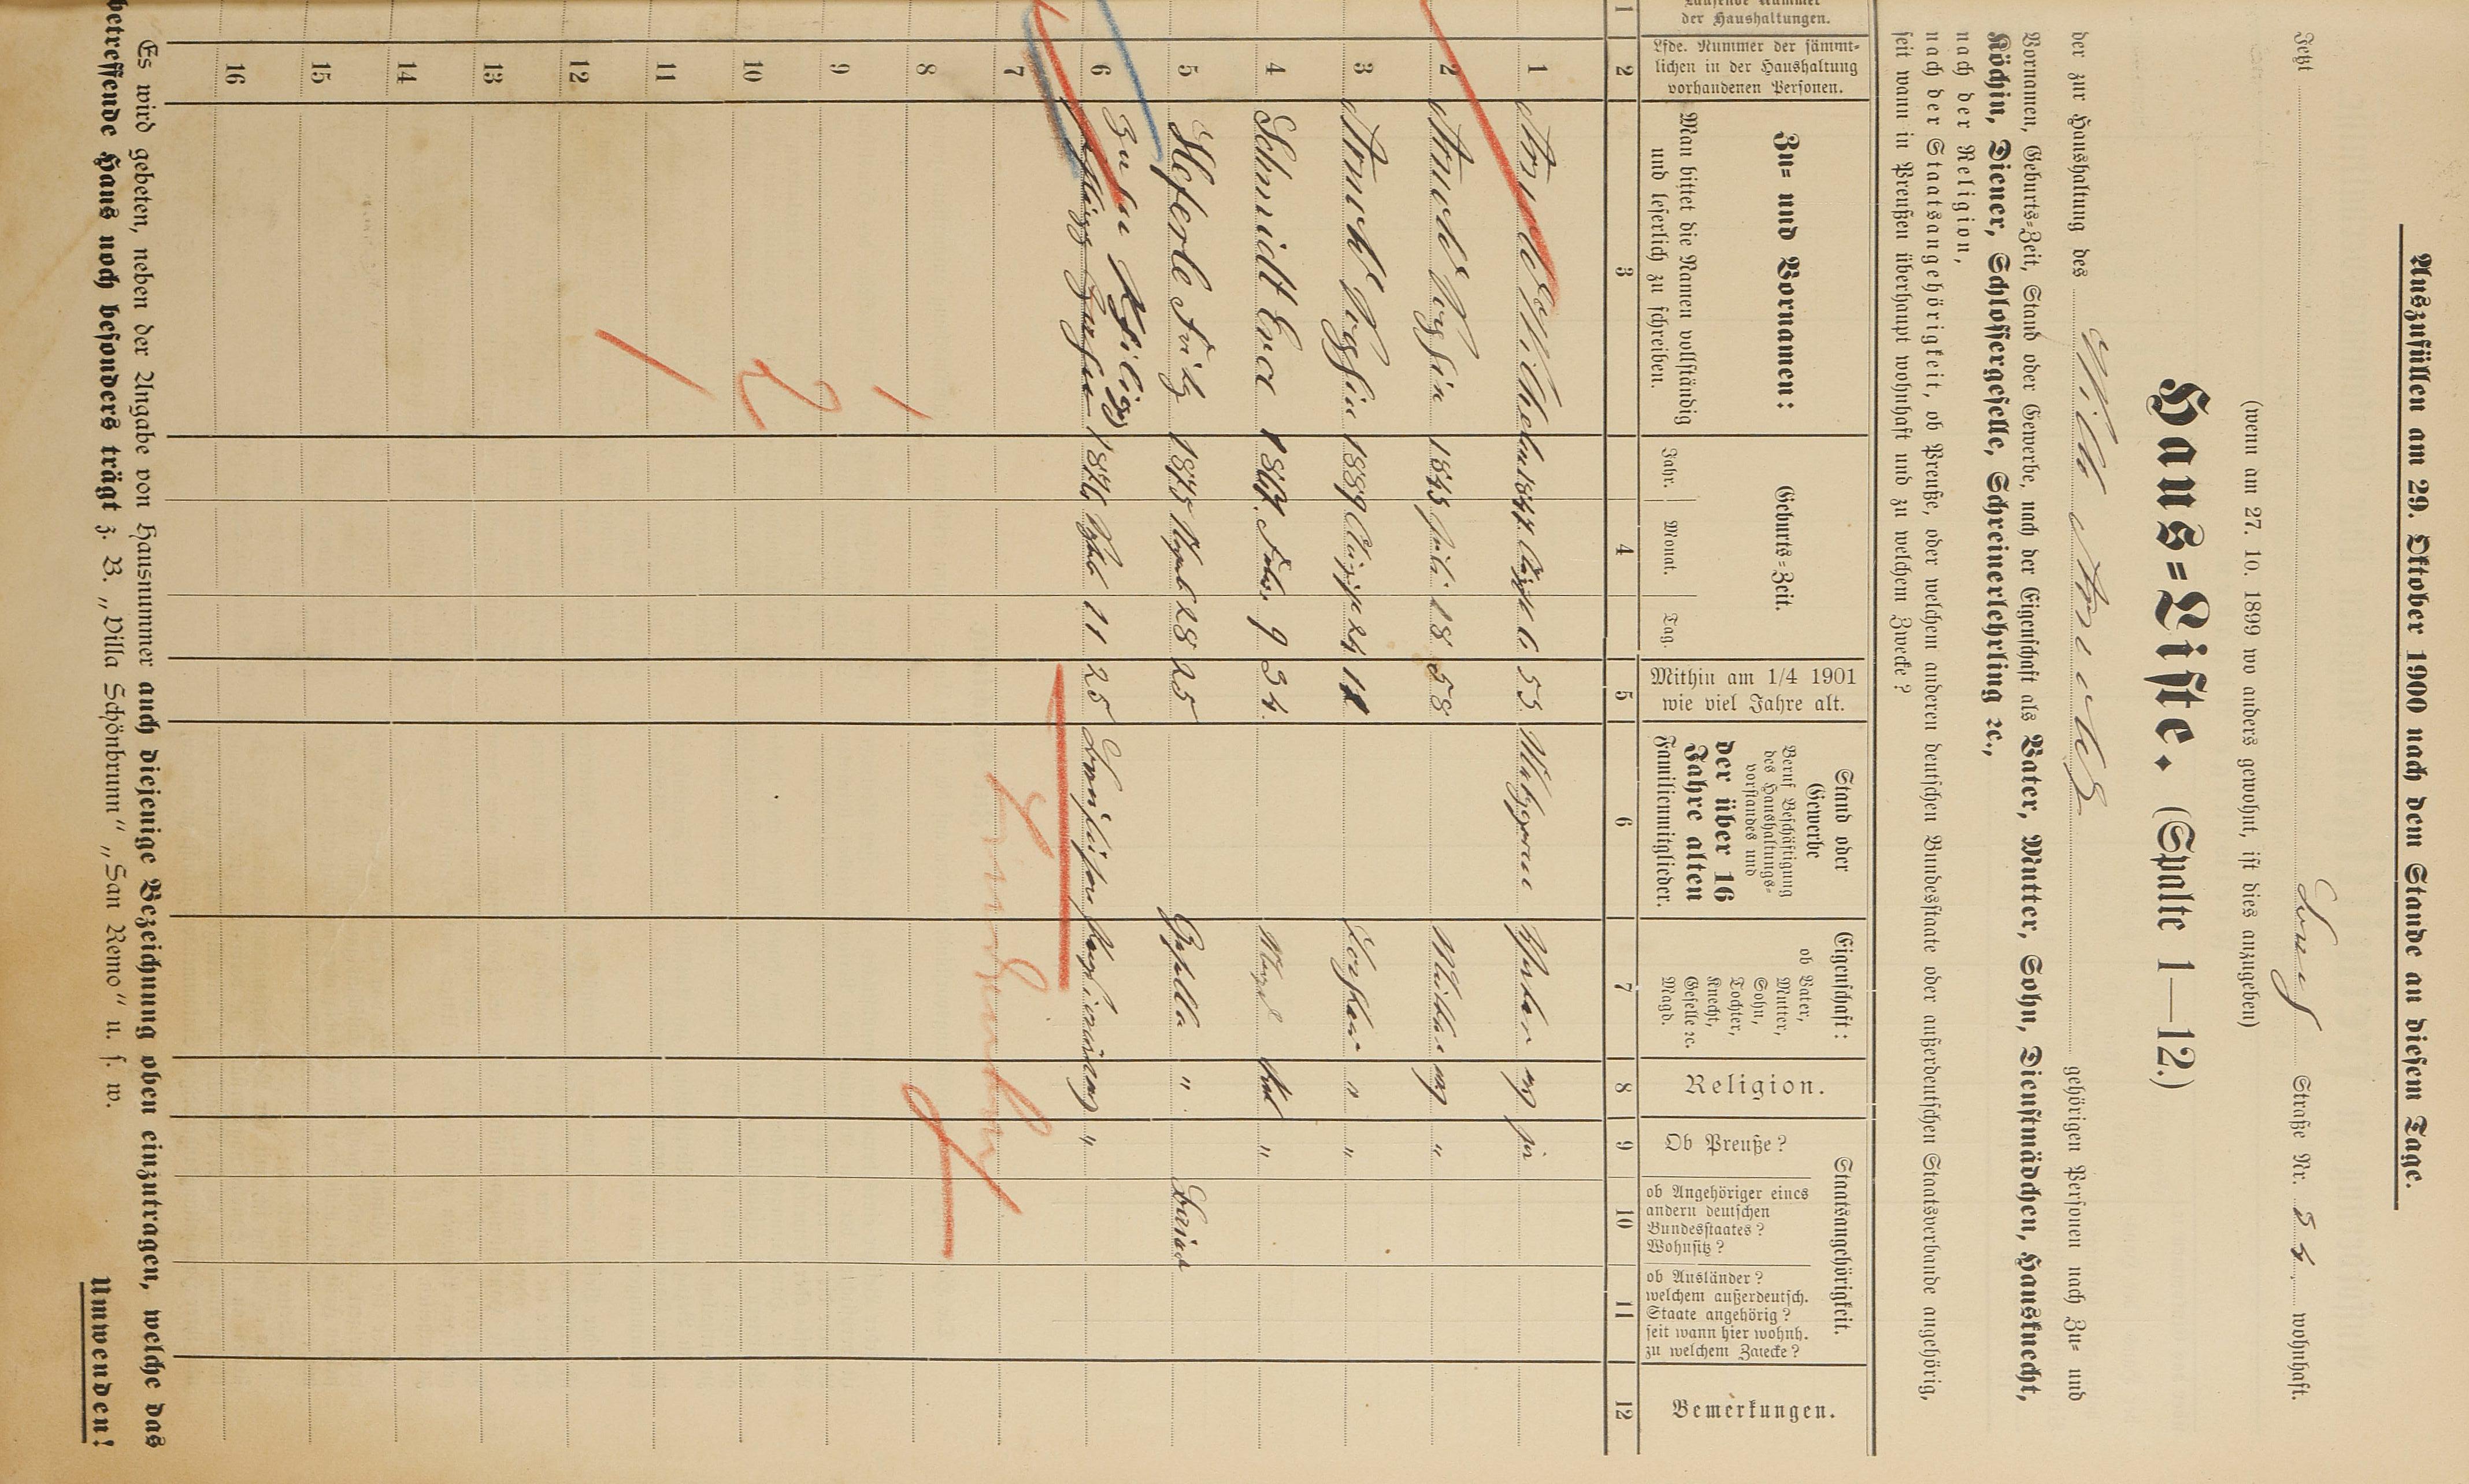 Auszufüllen am 29. Oktober 1900 nach dem Stande an diesem Tage.
Jetzt Straße Nr. 54 wohnhaft.
(wenn am 27. 10. 1899 wo anders gewohnt, ist dies anzugeben)
Haus=Liste. (Spalte 1—12.)
der zur Haushaltung des Wilh Arnold gehörigen Personen nach Zu= und
Vornamen, Geburts=Zeit, Stand oder Gewerbe, nach der Eigenschaft als Vater, Mutter, Sohn, Dienstmädchen, Hausknecht,
Köchin, Diener, Schlossergeselle, Schreinerlehrling ec.,
nach der Religion,
nach der Staatsangehörigkeit, ob Preuße, oder welchem anderen deutschen Bundesstaate oder außerdeutschen Staatsverbande angehörig,
seit wann in Preußen überhaupt wohnhaft und zu welchem Zwecke?
Laufende Nummer
der Haushaltungen.
Lfde. Nummer der sämmt=
lichen in der Haushaltung
vorhandenen Personen.
Zu= und Vornamen:
Man bittet die Namen vollständig
und leserlich zu schreiben.
Geburts=Zeit.
Jahr. Monat. Tag.
Mithin am 1/4 1901
wie viel Jahre alt.
Stand oder
Gewerbe
Beruf Beschäftigung
des Haushaltungs=
vorstandes und
der über 16
Jahre alten
Familienmitglieder.
Eigenschaft:
ob Vater,
Mutter,
Sohn,
Tochter,
Knecht,
Geselle ec.
Magd.
Religion.
Staatsangehörigkeit.
Ob Preuße?
ob Angehöriger eines
andern deutschen
Bundesstaates?
Wohnsitz?
ob Ausländer?
welchem außerdeutsch.
Staate angehörig?
seit wann hier wohnh.
zu welchem Zwecke?
Bemerkungen.
1 2 3 4 5 6 7 8 9 10 11 12
1 Arnold Wilhelm 1847 6 53 Metzger Vater ev ja
2 Arnold 1843 Juli 18 58 Mutter ev "
3 Arnold 1889 August 24 11 Tochter " "
4 Schmidt Eva 9 34 Magd kat "
5 Heferle Fritz 1875 28 25 Geselle " Baiern
6 1876 11 25 ev "
7
8
9
10
11
12
13
14
15
16
Es wird gebeten, neben der Angabe von Hausnummer auch diejenige Bezeichnung oben einzutragen, welche das
betreffende Haus noch besonders trägt z. B. „Villa Schönbrunn" „San Remo" u. s. w.
Umwenden!